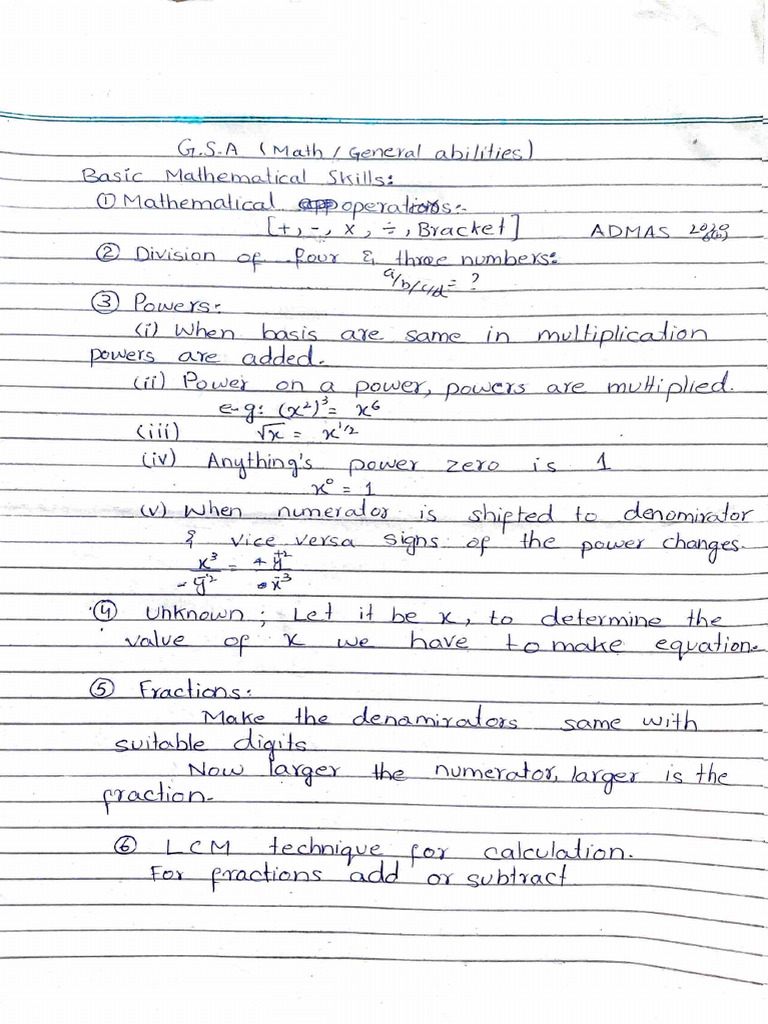 G.S.A (Math / General abilities)
Basic Mathematical Skills:
① Mathematical operations:-
[+, -, x, ÷, Bracket] ADMAS
② Division of four & three numbers:
a/b/c/d = ?
③ Powers:-
(i) When basis are same in multiplication
powers are added.
(ii) Power on a power, powers are multiplied.
e-g: (x²)³ = x⁶
(iii) √x = x^1/2
(iv) Anything's power zero is 1
x⁰ = 1
(v) When numerator is shifted to denomirator
& vice versa signs of the power changes.
x³ = +y⁺²
-y⁻² x⁻³
④ Unknown ; Let it be x, to determine the
value of x we have to make equation.
⑤ Fractions:
Make the denamirators same with
suitable digits
Now larger the numerator, larger is the
fraction-
⑥ LCM technique for calculation.
For fractions add or subtract